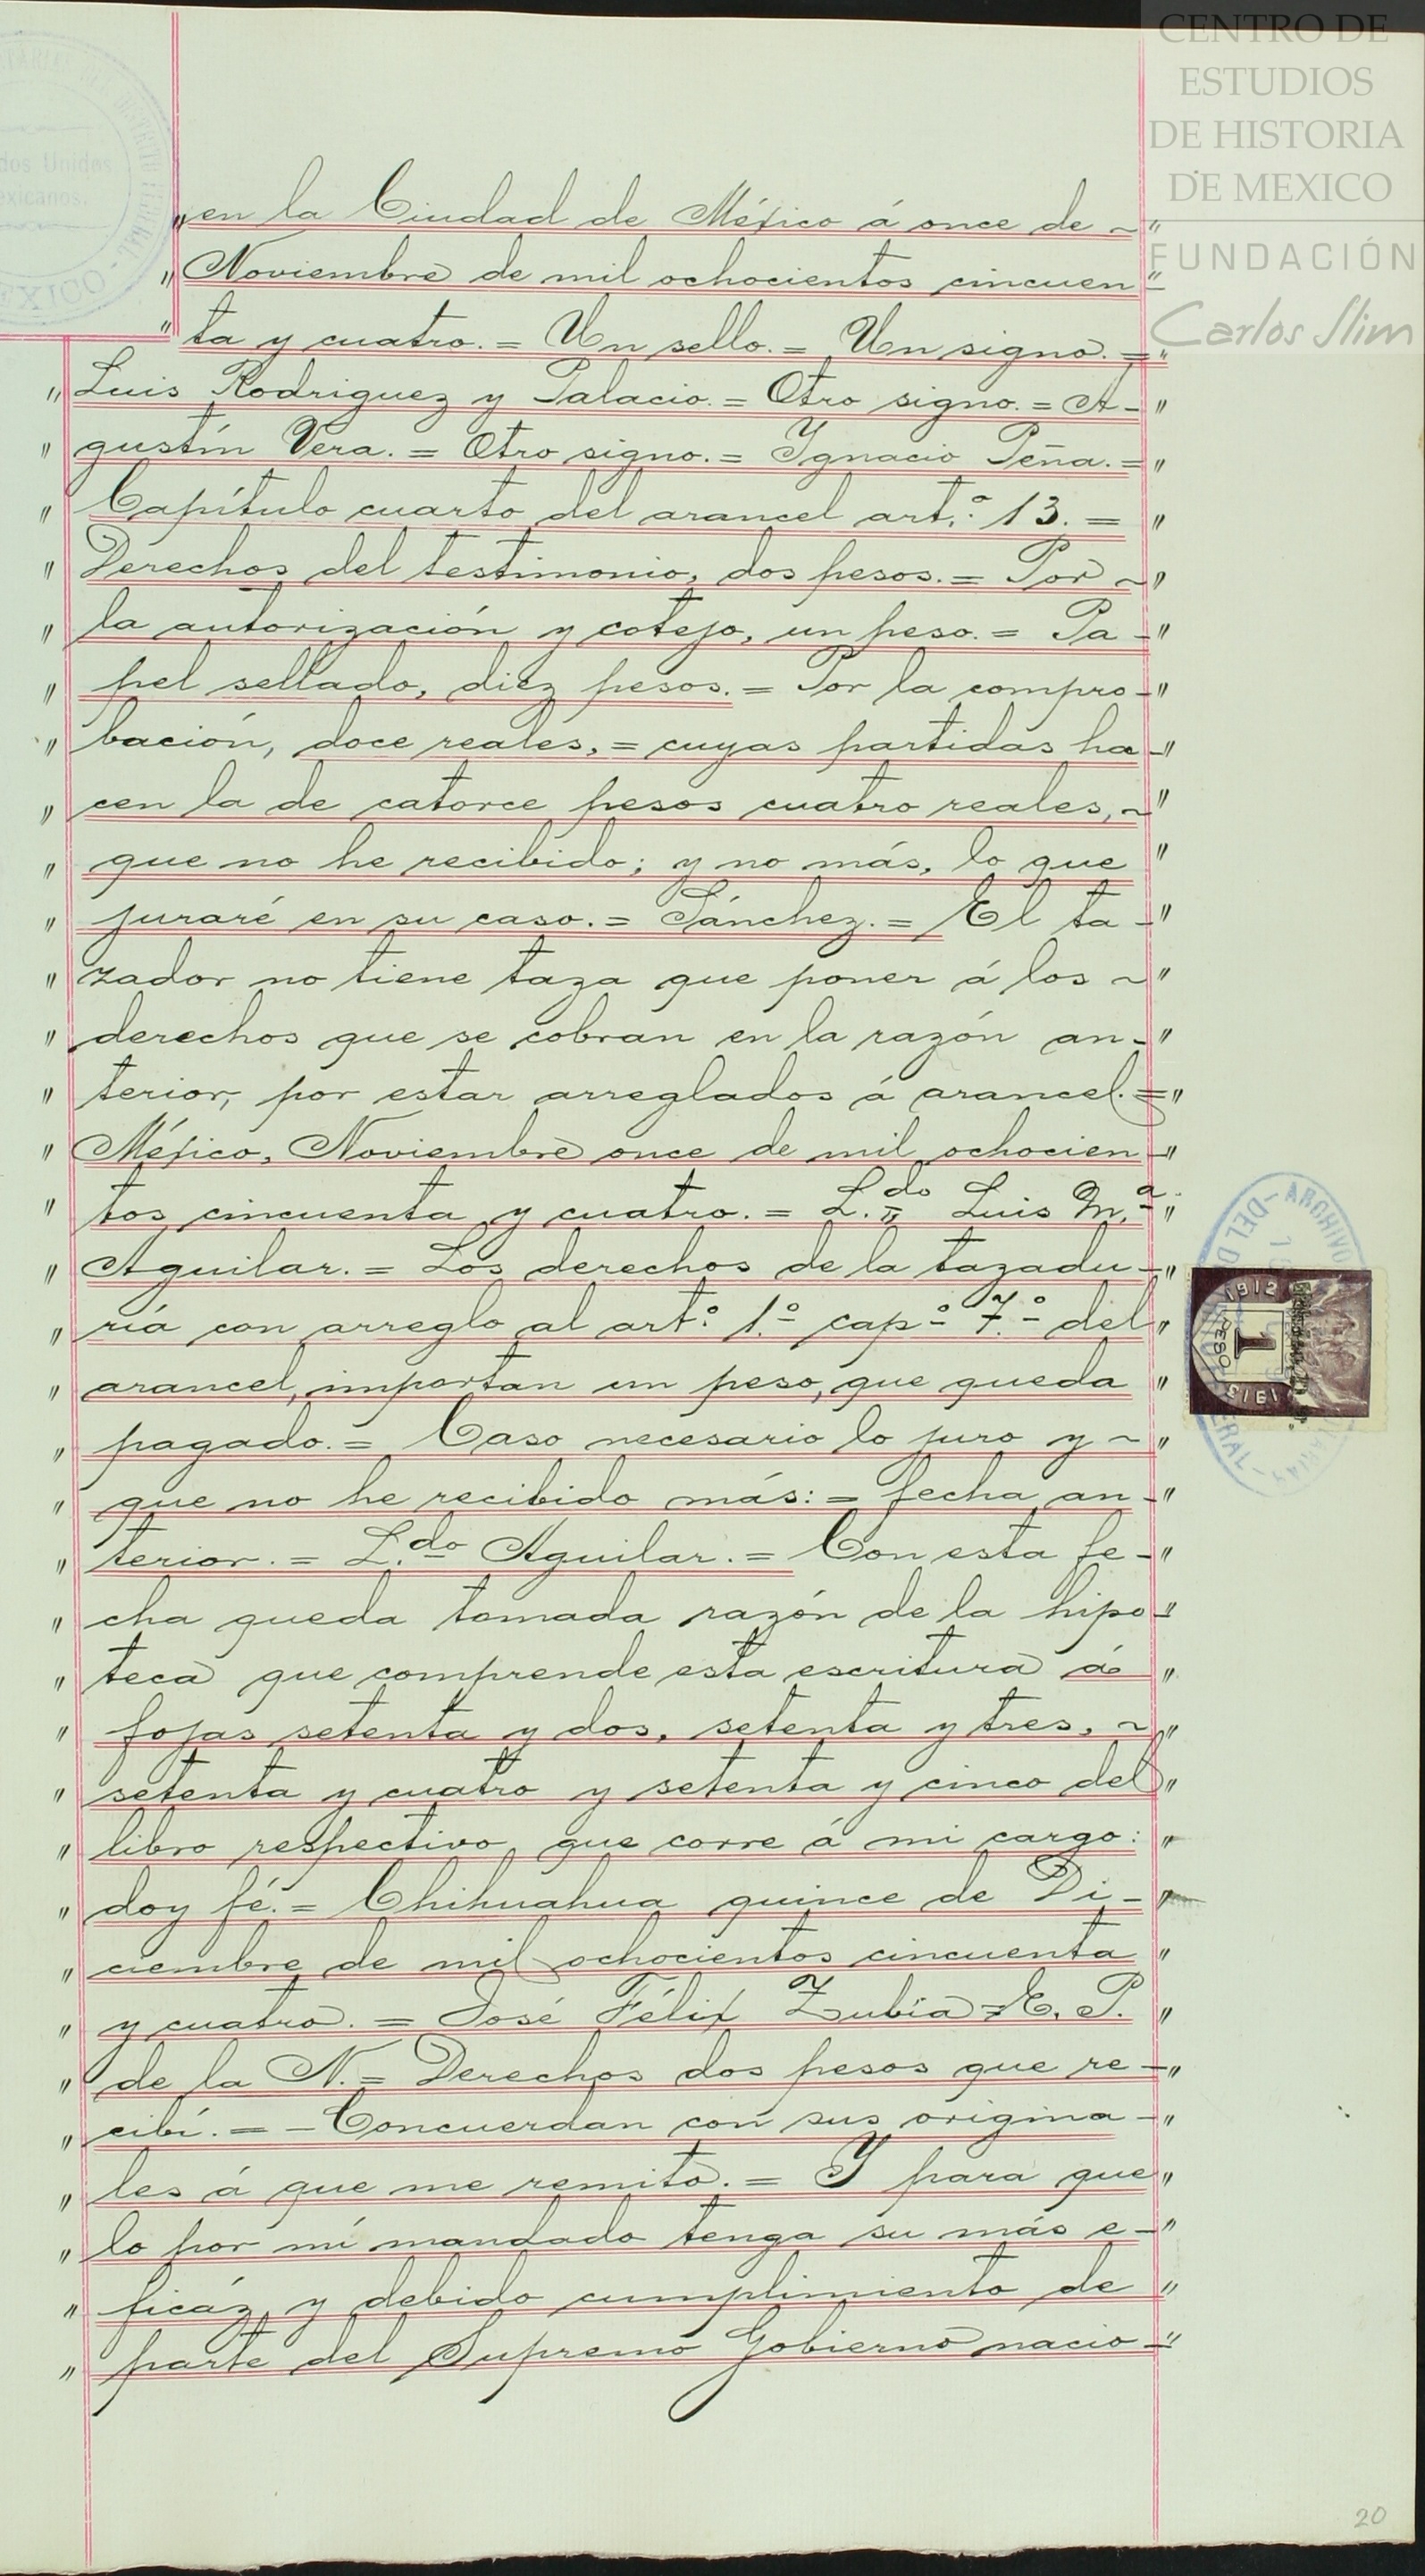 CENTRO DE
ESTUDIOS
DE HISTORIA
DE MEXICO
FUNDACIÓN
Carlos Slim
dos Unidos
exicanos.
DISTRITO FEDERAL - MEXICO
" en la Ciudad de México á once de ~ "
" Noviembre de mil ochocientos cincuen "
" ta y cuatro. = Un sello. = Un signo. = "
" Luis Rodriguez y Palacio. = Otro signo. = A- "
" gustín Vera. = Otro signo. = Ygnacio Peña. = "
" Capítulo cuarto del arancel art.º 13. = "
" Derechos del testimonio, dos pesos. = Por ~ "
" la autorización y cotejo, un peso. = Pa - "
" pel sellado, diez pesos. = Por la compro- "
" bación, doce reales, = cuyas partidas ha - "
" cen la de catorce pesos cuatro reales, ~ "
" que no he recibido; y no más, lo que "
" juraré en su caso. = Sánchez. = El ta - "
" zador no tiene taza que poner á los ~ "
" derechos que se cobran en la razón an- "
" terior, por estar arreglados á arancel. = "
" México, Noviembre once de mil ochocien - "
" tos cincuenta y cuatro. = L.do Luis M.a "
" Aguilar. = Los derechos de la tazadu - "
" ría con arreglo al art.º 1.º cap.º 7.º del "
" arancel, importan un peso, que queda "
" pagado. = Caso necesario lo juro y ~ "
" que no he recibido más: = fecha an - "
" terior. = L.do Aguilar. = Con esta fe - "
" cha queda tomada razón de la hipo - "
" teca que comprende esta escritura á "
" fojas setenta y dos, setenta y tres, ~ "
" setenta y cuatro y setenta y cinco del "
" libro respectivo que corre á mi cargo: "
" doy fé. = Chihuahua quince de Di - "
" ciembre de mil ochocientos cincuenta "
" y cuatro. = José Félix Zubia = E. P. "
" de la N. = Derechos dos pesos que re - "
" cibí. = - Concuerdan con sus origina - "
" les á que me remito. = Y para que "
" lo por mí mandado tenga su más e - "
" ficáz y debido cumplimiento de "
" parte del Supremo Gobierno nacio - "
1912
1
PESO
1913
20